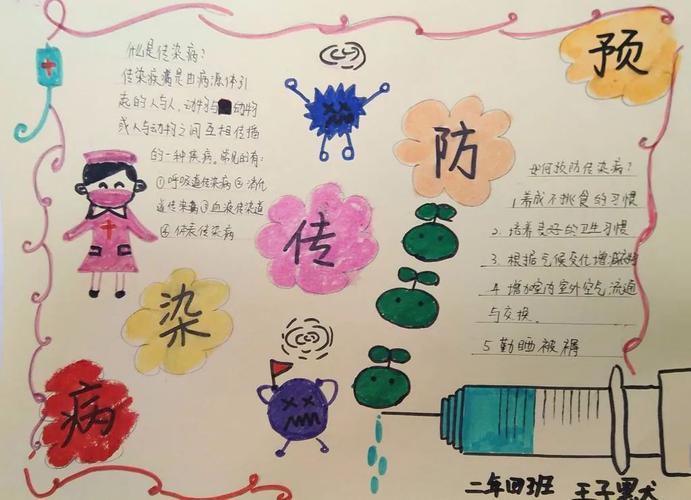 预
防
传
染
病
什么是传染病?
传染病是由病源体引
起的人与人、动物与动物
或人与动物之间互相传播
的一种疾病。常见的有:
①呼吸道传染病②消化
道传染病③血液传染道
④体表传染病
如何预防传染病?
1.养成不挑食的习惯
2.培养良好的卫生习惯
3.根据气候变化增减衣物
4.增加室内室外空气流通
与交换.
5勤晒被褥
二年四班 王子